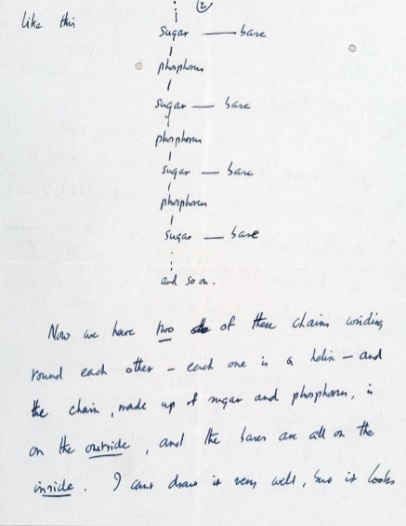 (2)
like this
sugar — base
phosphorus
sugar — base
phosphorus
sugar — base
phosphorus
sugar — base
and so on.
Now we have two of these chains winding
round each other — each one is a helix — and
the chain, made up of sugar and phosphorus, is
on the outside, and the bases are all on the
inside. I can't draw it very well, but it looks